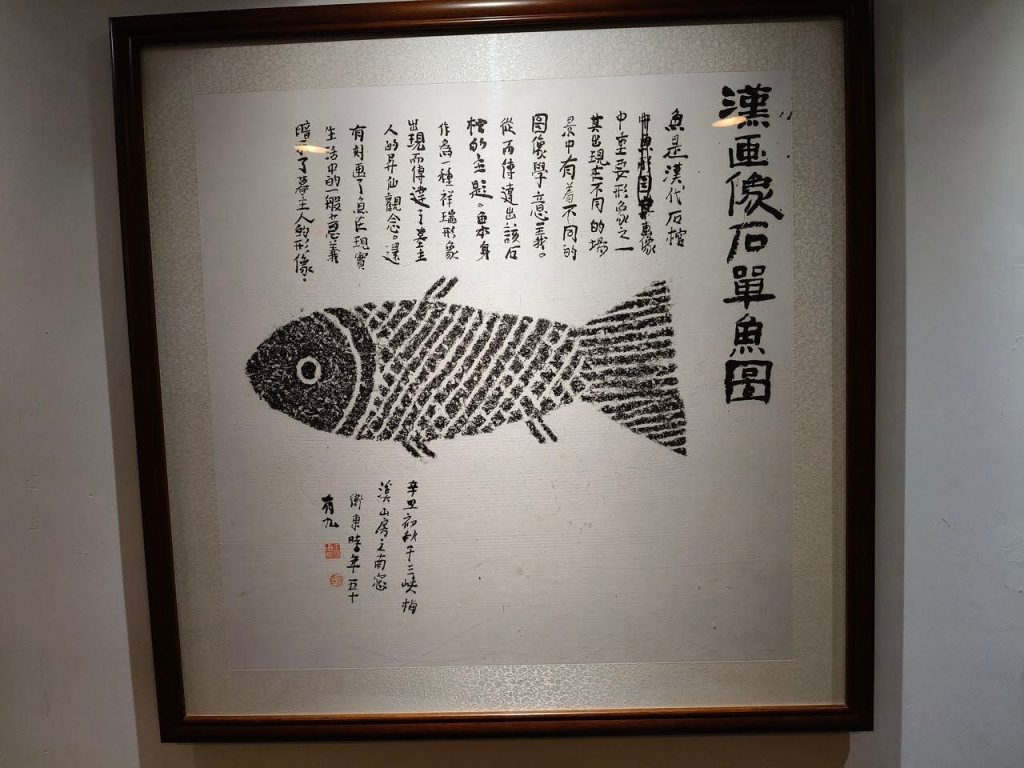 漢画像石單魚圖
魚是漢代石棺
中重要形象之一
其出現在不同的場
景中有着不同的
圖像學意義。
從而傳達出該石
棺的主題。魚本身
作為一種祥瑞形象
出現而傳達了墓主
人的昇仙觀念。還
有刻画了魚在現實
生活中的一般意義
暗示了墓主人的形像。
辛丑初秋于三峽梅
溪山房之南窓
衛東時年五十
有九